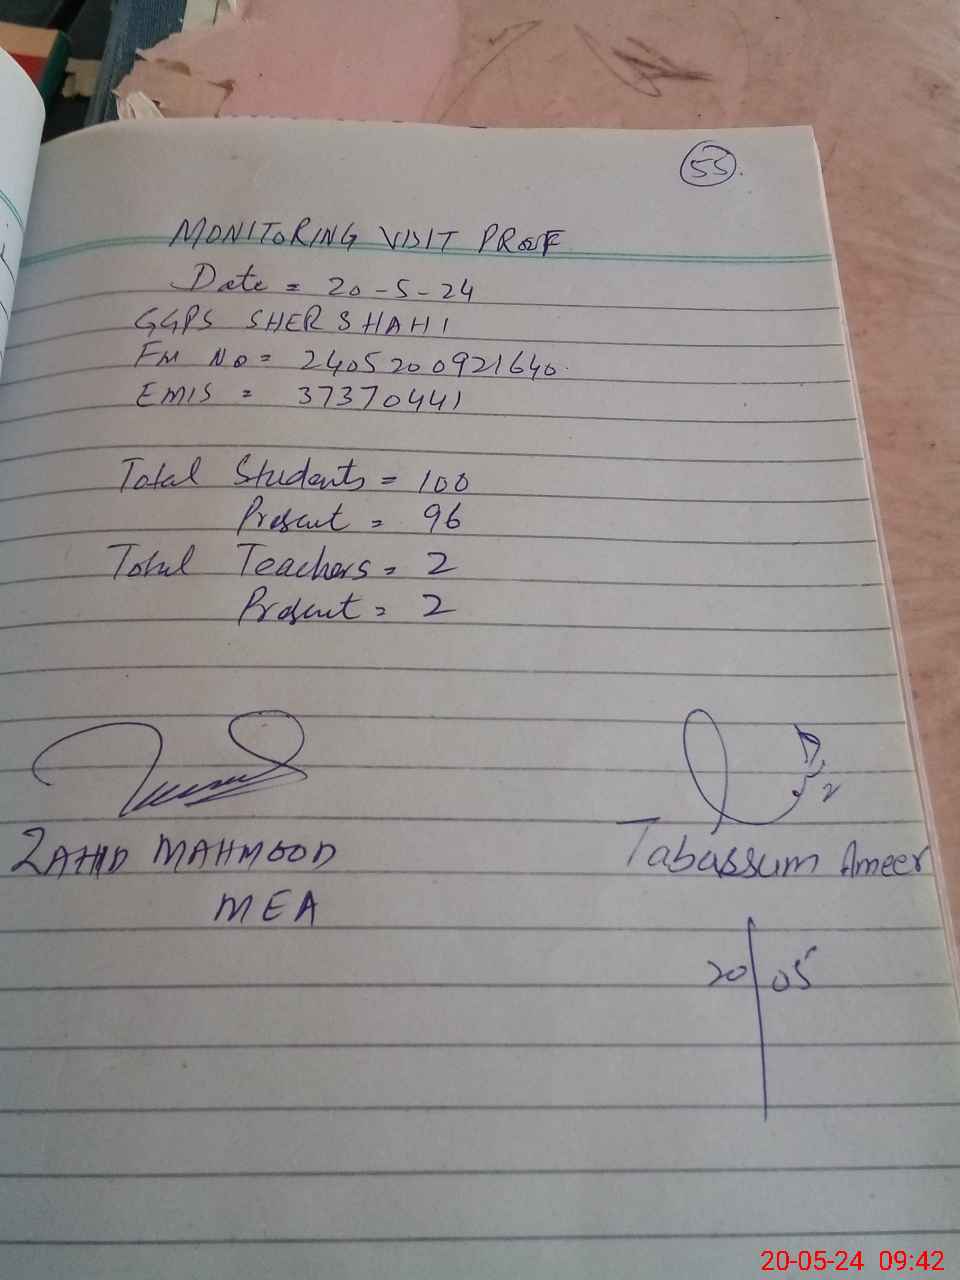 55
MONITORING VISIT PROOF
Date = 20-5-24
GGPS SHER SHAHI
FM NO = 2405200921640
EMIS = 37370441
Total Students = 100
Present = 96
Total Teachers = 2
Present = 2
ZAHID MAHMOOD
MEA
Tabassum Ameer
20/05
20-05-24 09:42